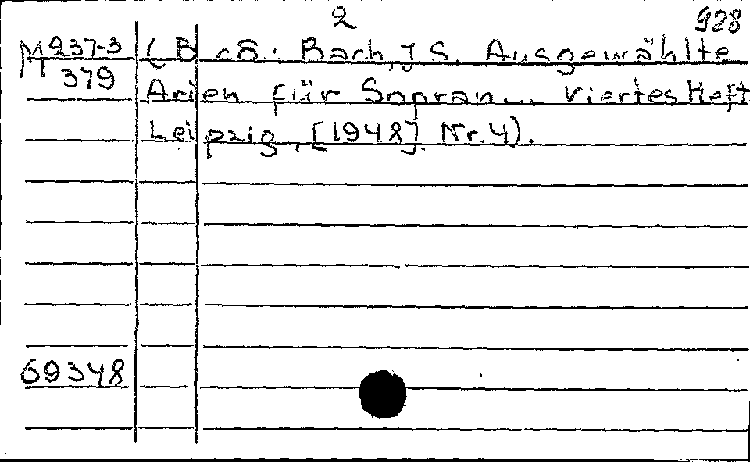 2 928
М 237-3 (В сб: Bach, J S. Ausgewählte
379 Arien für Sopran... Viertes Heft
Leipzig, [1948] Nr. 4).
69348